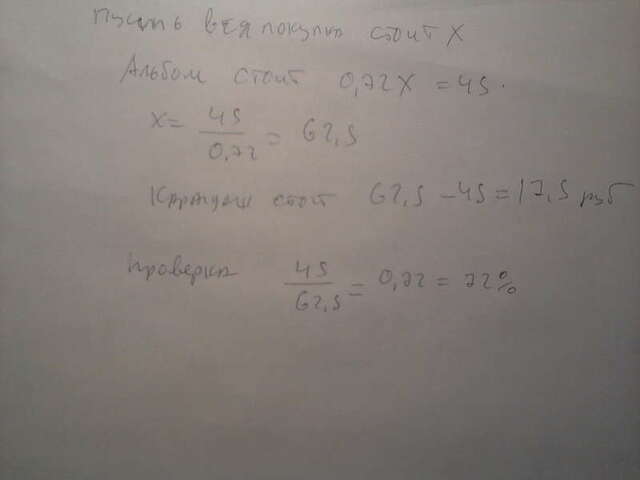 Пусть вся покупка стоит X
Альбом стоит 0,72X = 45.
X = 45/0,72 = 62,5
Карандаш стоит 62,5 - 45 = 17,5 руб
Проверка 45/62,5 = 0,72 = 72%